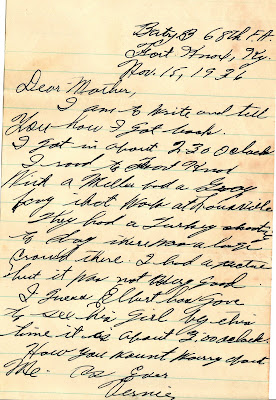 Baty B 68th F.A.
Fort Knox, Ky.
Nov. 15, 1936
Dear Mother,
I am to write and tell
You how I got back.
I got in about 2.30 oclock
I road to Fort Knox
With a Miller and a
that work at Louisville
They had a Turkey shooting
to day there was a large
Crowd there. I had a
but it was not very good
I guess Elbert has gone
to see his girl by this
time it is about 7.00 oclock.
Now you wount worry about
Me. As Ever
Vernie